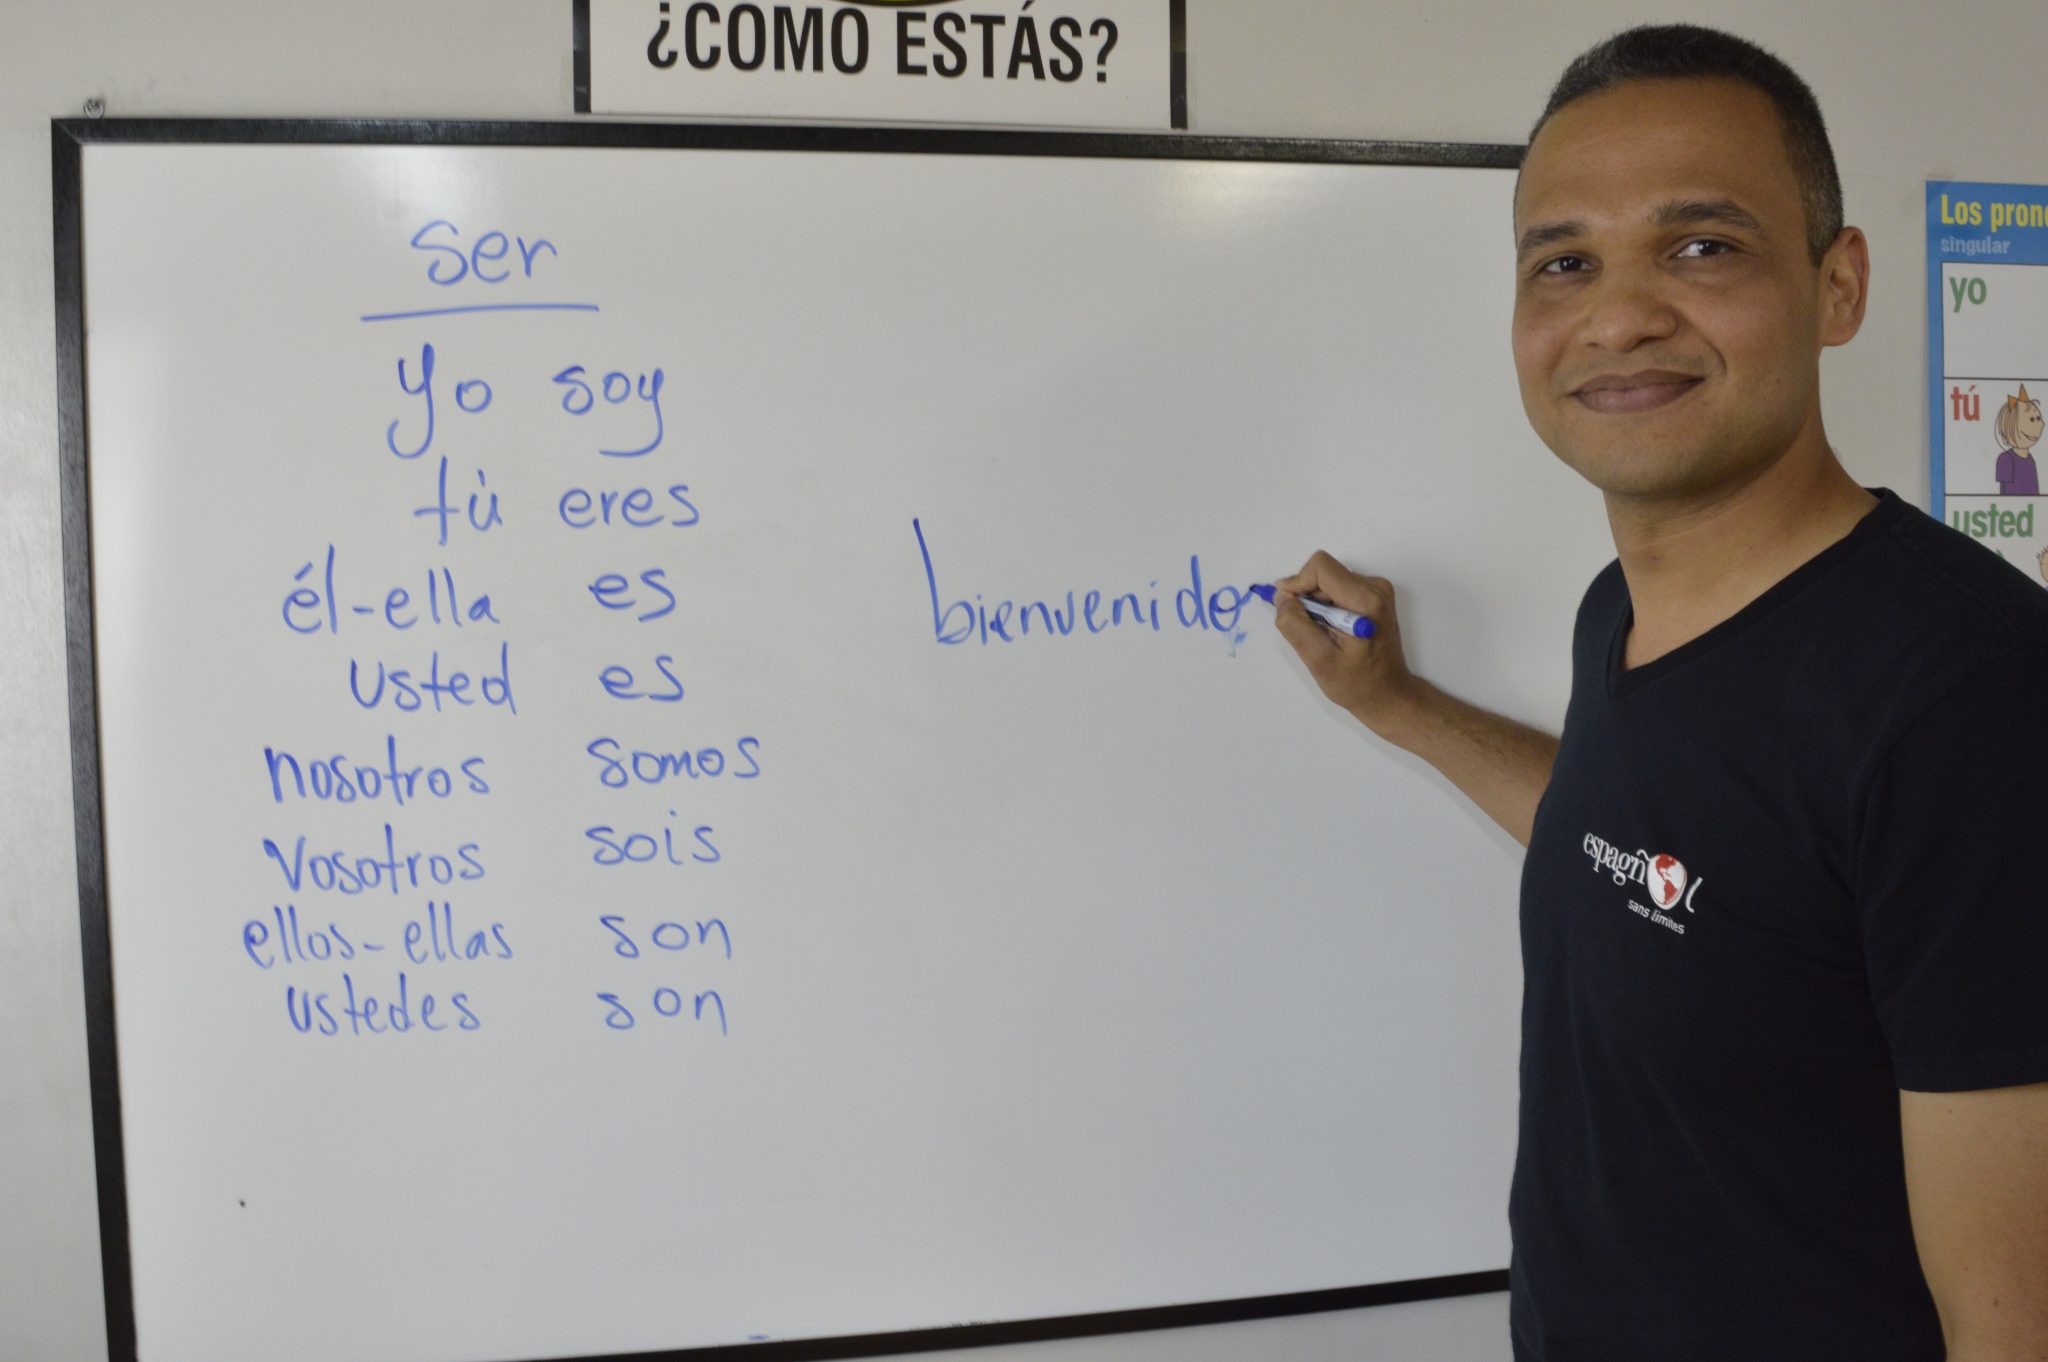 ¿COMO ESTÁS?
ser
yo soy
tú eres
él-ella es
usted es
nosotros somos
vosotros sois
ellos-ellas son
ustedes son
bienvenido
Los pron
singular
yo
tú
usted
espagñol
sans limites